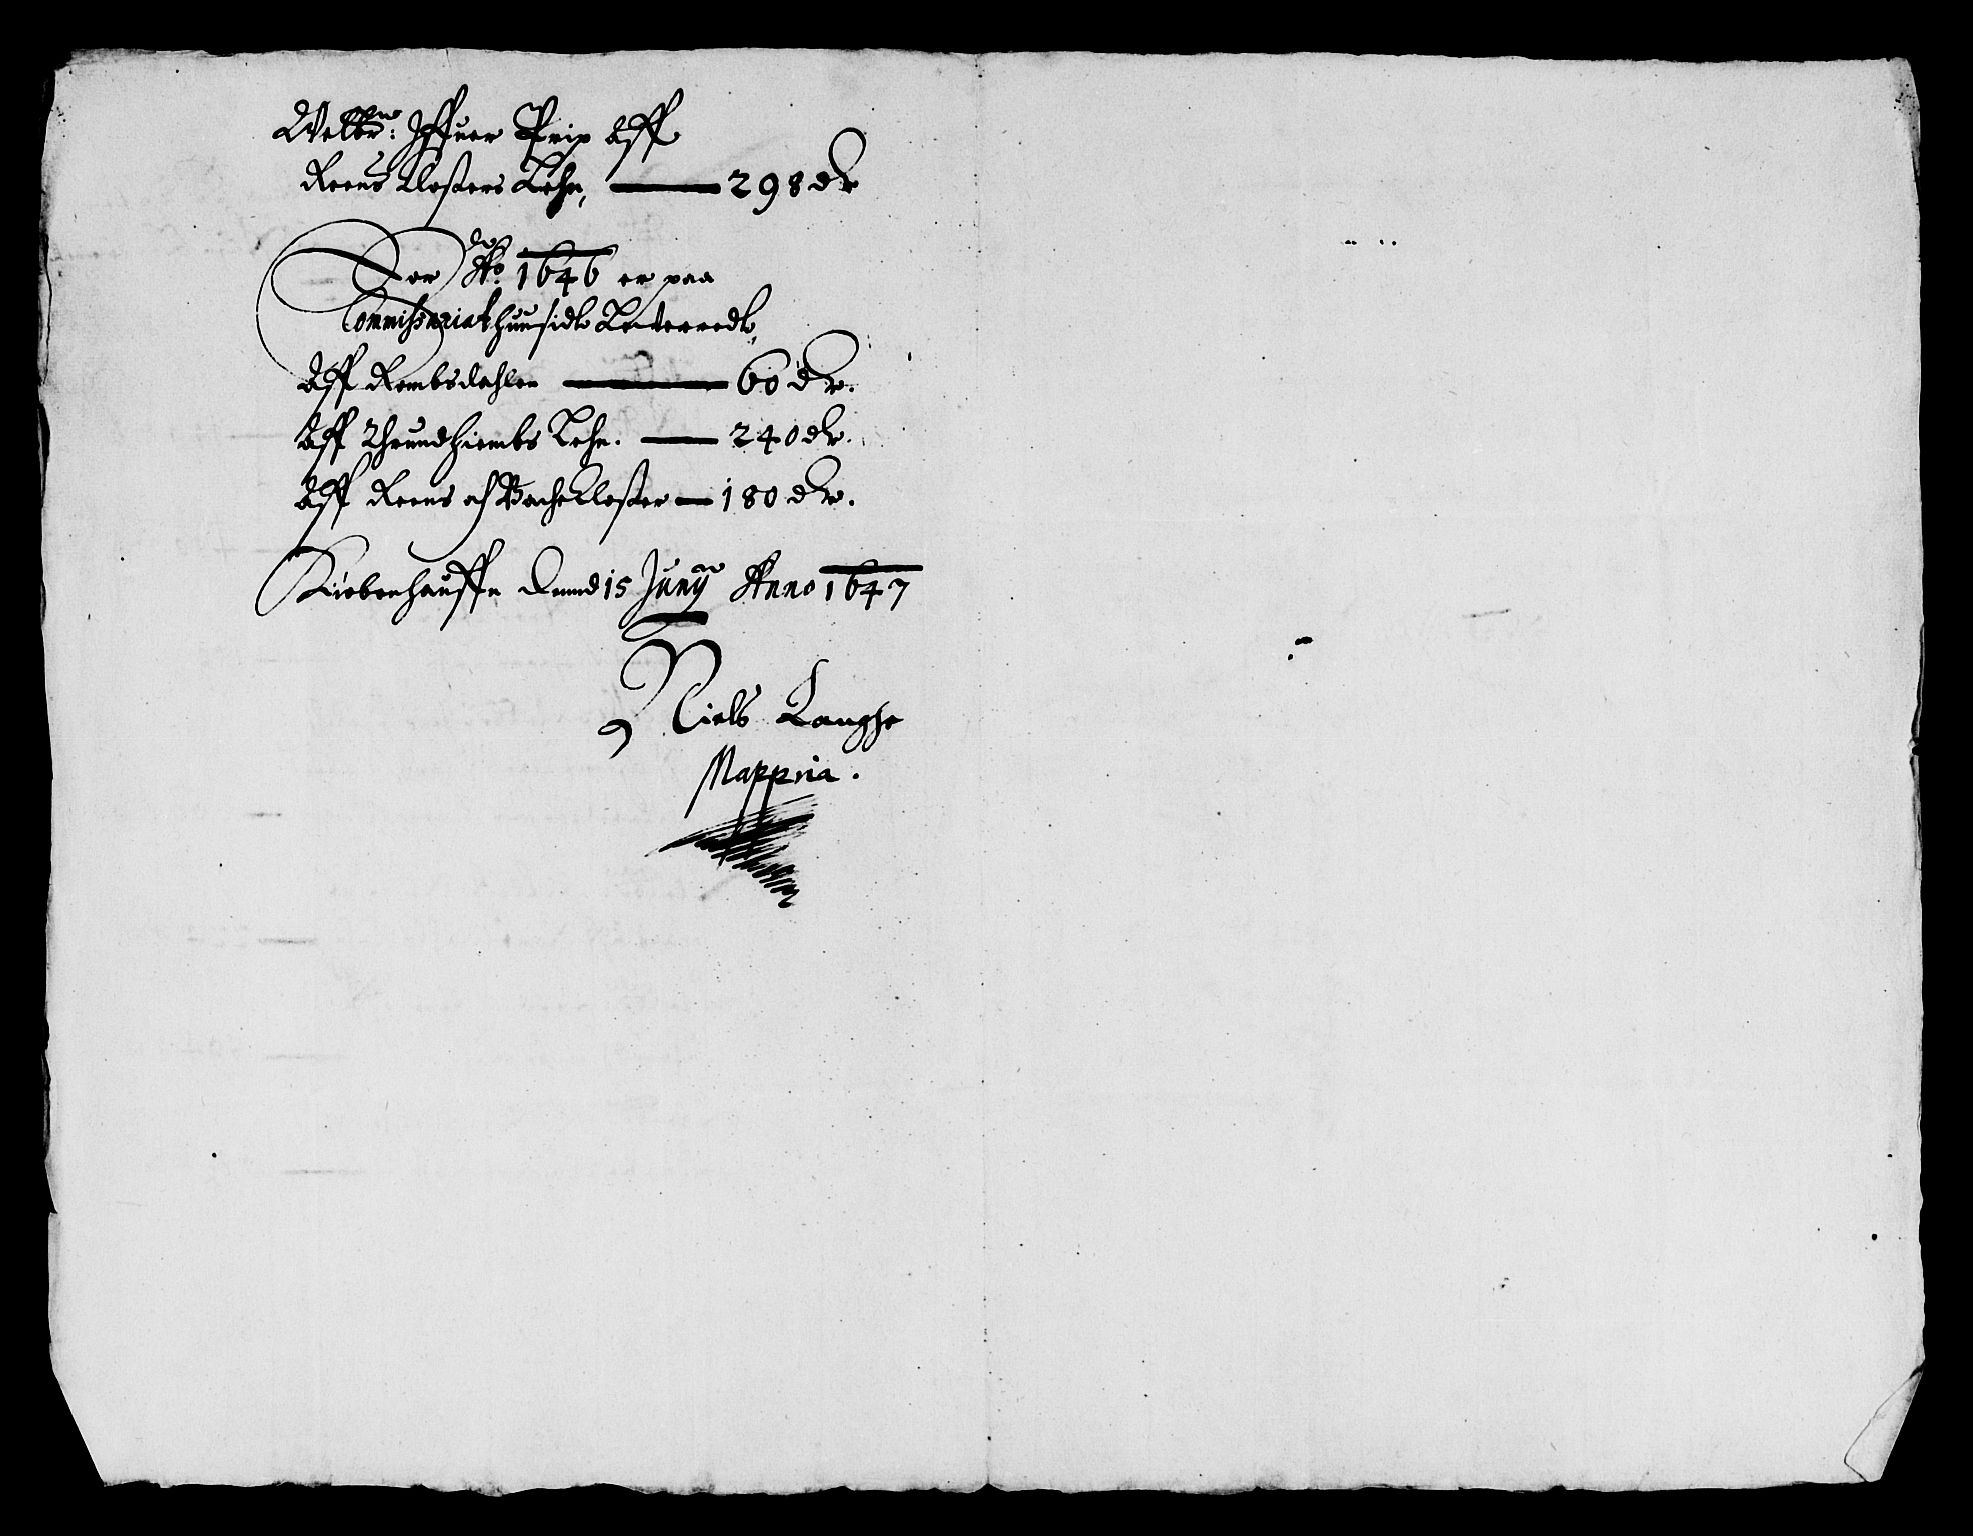 Welbr: Iffuer Prip Aff
Reens Closters Lehn, 298 dr
For Ao. 1646 er paa
Commissariathuusidt Leverredt,
Aff Rombsdahlen 60 dr.
Aff Thrundhiembs Lehn. 240 dr.
Aff Reens och Bache Closter 180 dr.
Kiøbenhauffn dennd 15 Junij Anno 1647
Niels Langhe
Mappria.